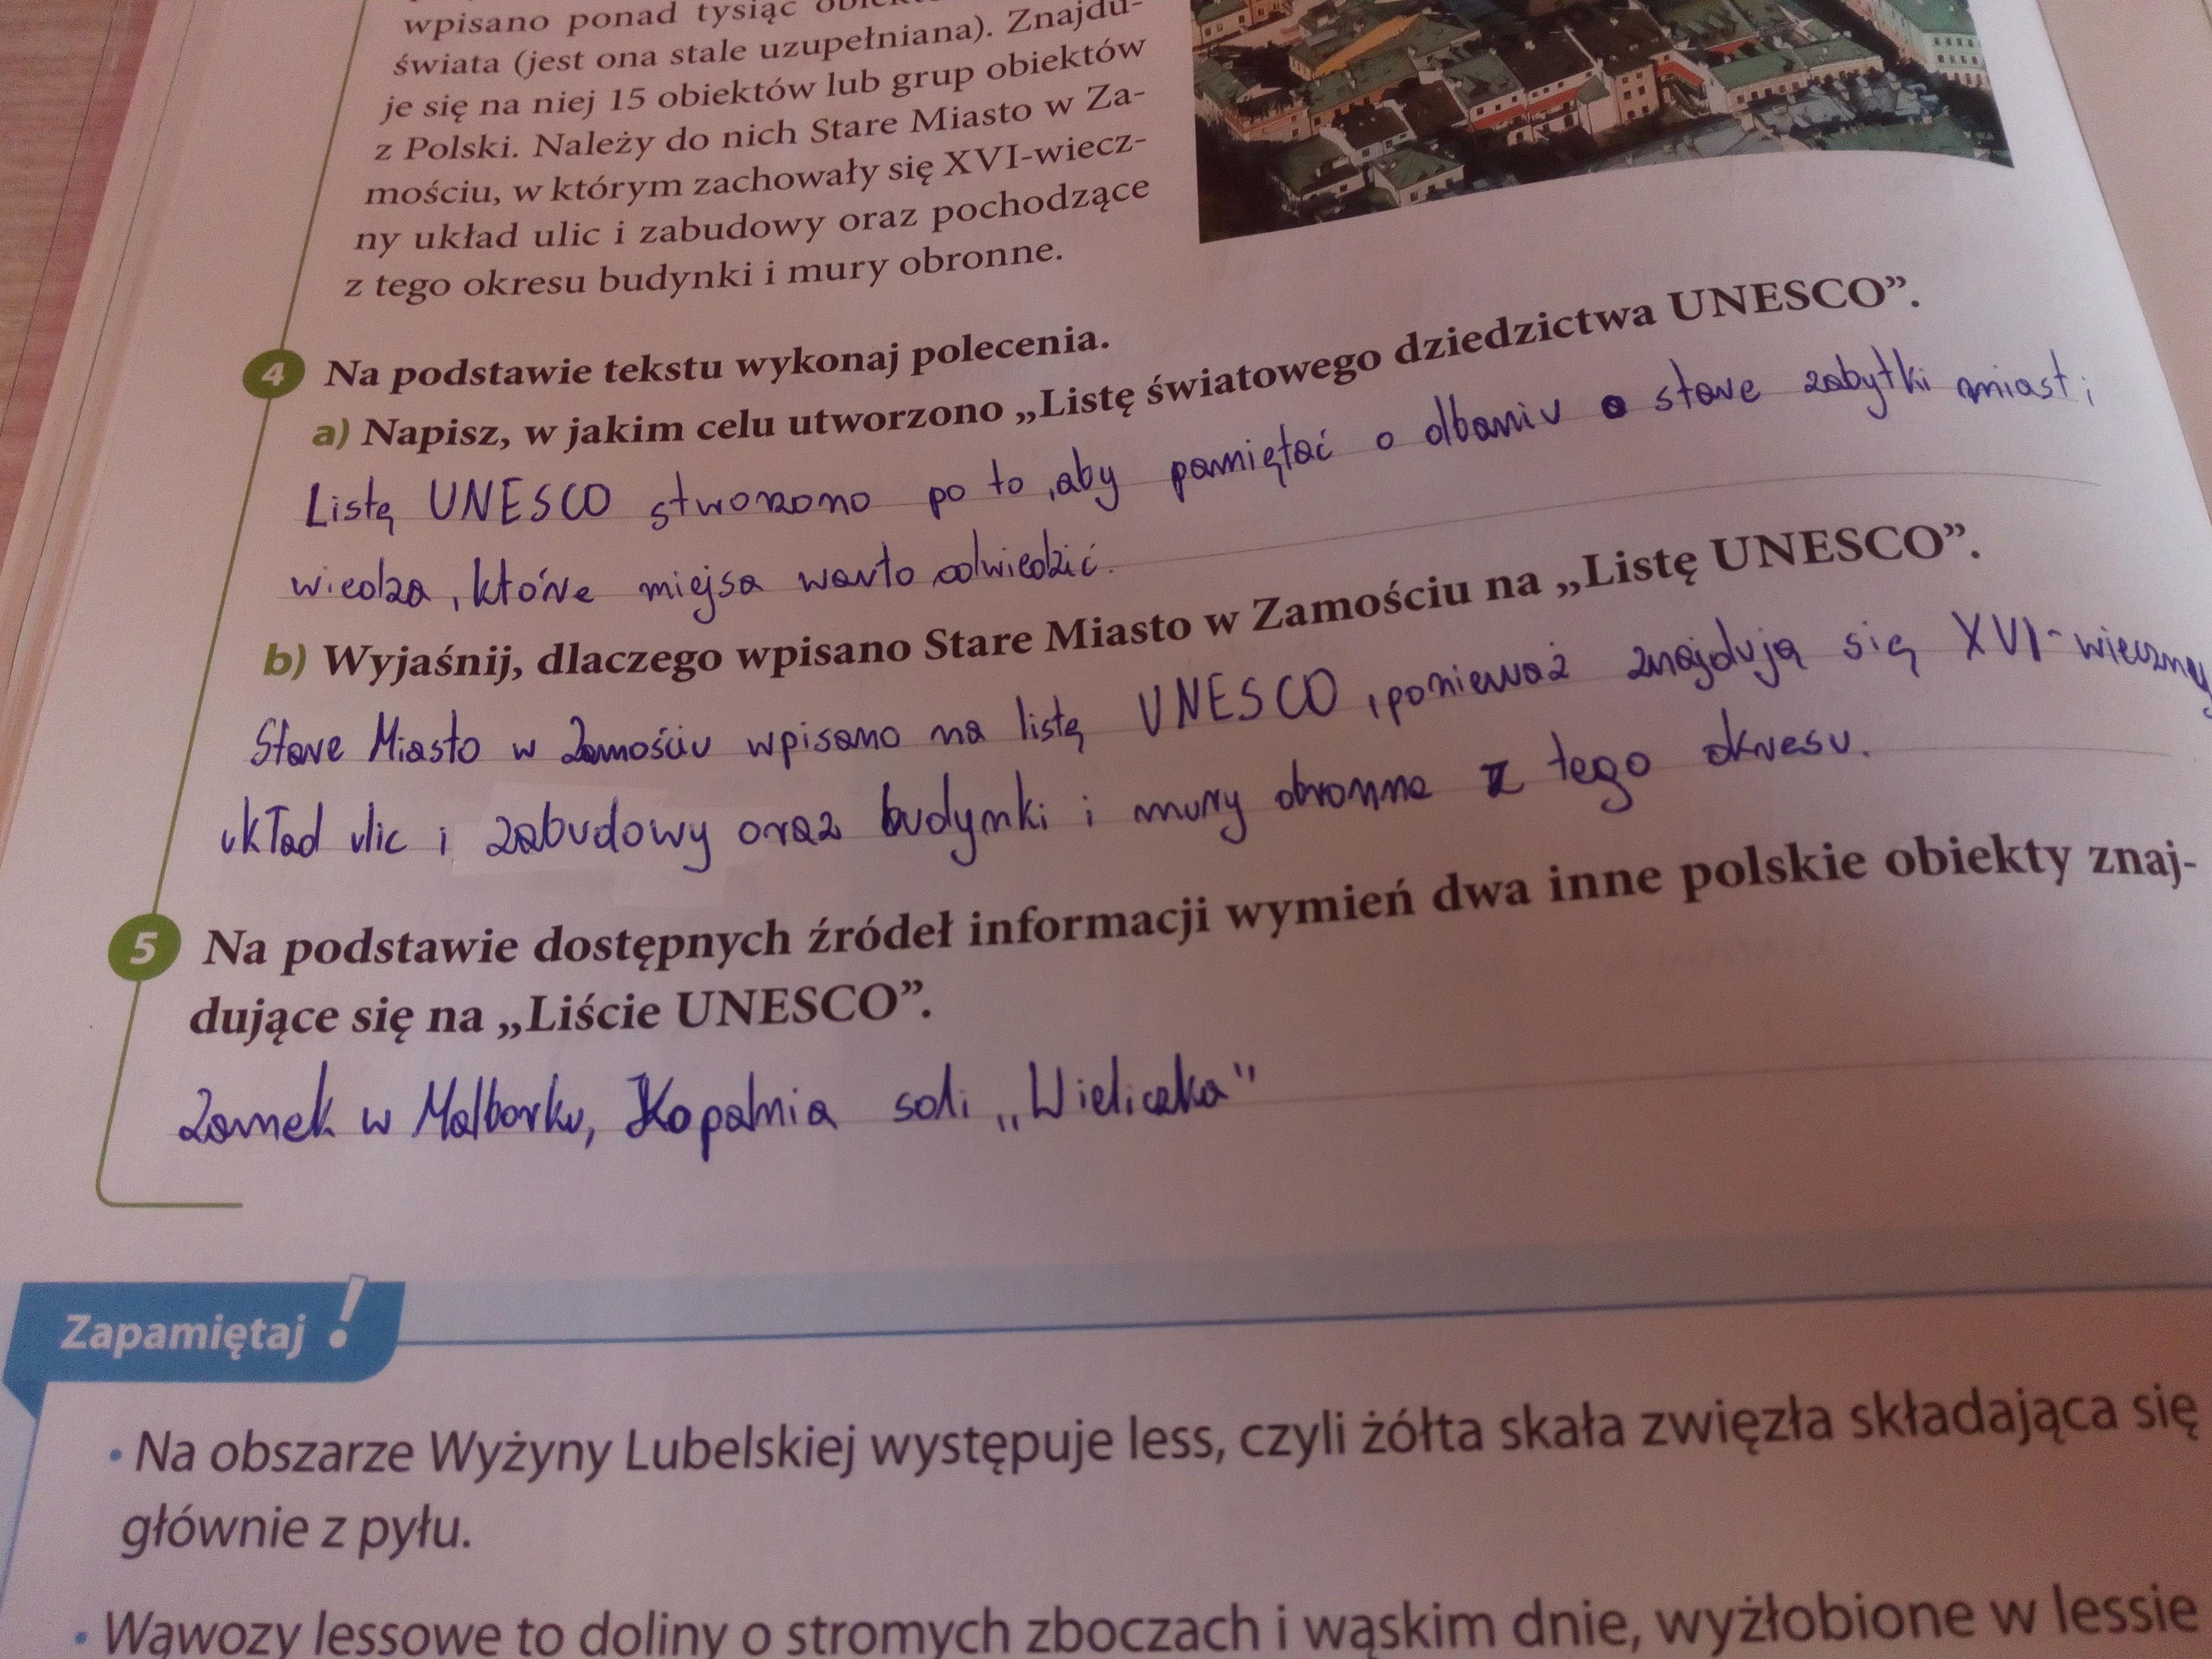 wpisano ponad tysiąc
świata (jest ona stale uzupełniana). Znajdu-
je się na niej 15 obiektów lub grup obiektów
z Polski. Należy do nich Stare Miasto w Za-
mościu, w którym zachowały się XVI-wiecz-
ny układ ulic i zabudowy oraz pochodzące
z tego okresu budynki i mury obronne.
4 Na podstawie tekstu wykonaj polecenia.
a) Napisz, w jakim celu utworzono „Listę światowego dziedzictwa UNESCO”.
Listę UNESCO stworzono po to, aby pamiętać o dbaniu o stare zabytki miast i
wiedza, które miejsa warto odwiedzić.
b) Wyjaśnij, dlaczego wpisano Stare Miasto w Zamościu na „Listę UNESCO”.
Stare Miasto w Zamościu wpisano na listę UNESCO, ponieważ znajdują się XVI-wieczny
układ ulic i zabudowy oraz budynki i mury obronne z tego okresu.
5 Na podstawie dostępnych źródeł informacji wymień dwa inne polskie obiekty znaj-
dujące się na „Liście UNESCO”.
Zamek w Malborku, Kopalnia soli „Wieliczka”
Zapamiętaj !
• Na obszarze Wyżyny Lubelskiej występuje less, czyli żółta skała zwięzła składająca się
głównie z pyłu.
• Wąwozy lessowe to doliny o stromych zboczach i wąskim dnie, wyżłobione w lessie